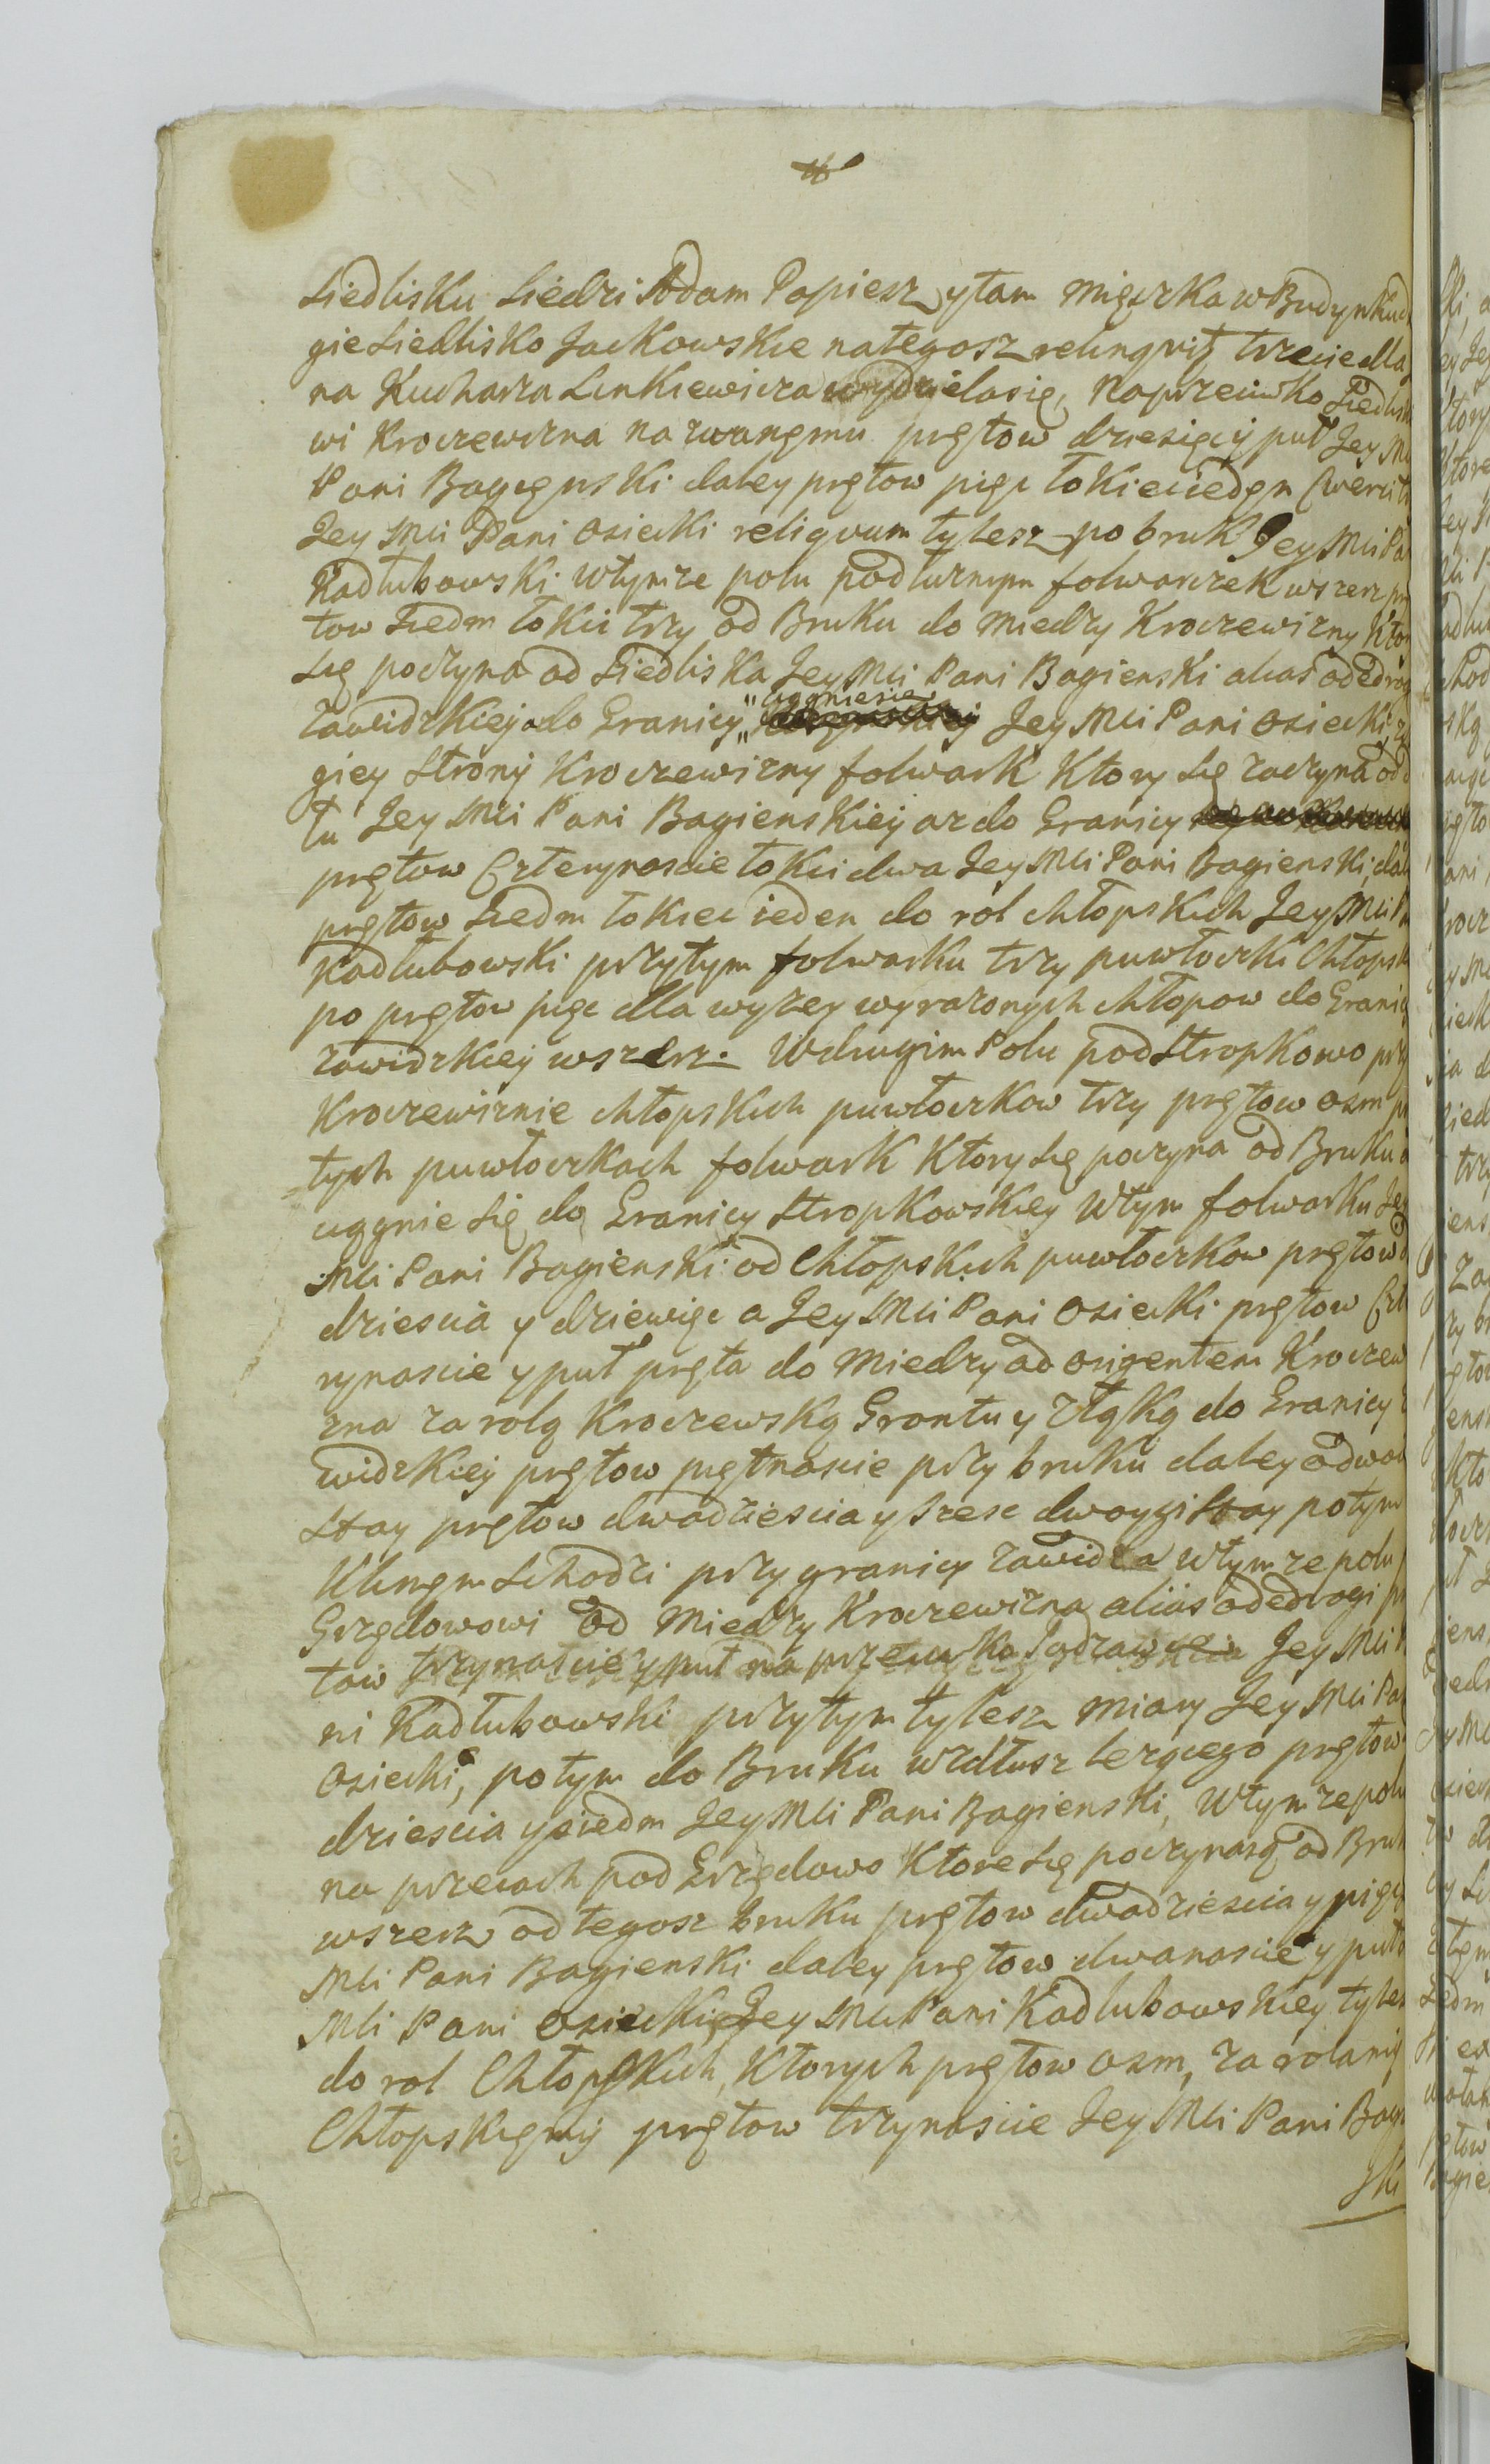 Siedlisku Siedzi Adam Papiesz ytam mięszka w Budynku
gie Siedlisko Jackowskie nategosz relinqvit trzecie dla
na Kucharza Linkiewicza wydzielasię, Naprzeciwko Siedlisk
wi Kroczewizna nazwangmu prętow dziesięcy puł Jey M
Pani Bagęgnski daley prętow pięc łokieciedgn Cwerc
Jey Mci Pani Osiecki reliquum tylesz po bruk Jey Mci Pa
Kadłubowski wtymze polu podłuznym folwarczek wszerz
tow Siedm łokci trzy od Bruku do Miedzy Kroczewizny Kto
Się poczyna od Siedliska Jey Mci Pani Bagienski alias odedrog
Zawidzkiej do Granicy ciągnie się Jey Mci Pani Osiecki
giey strony Kroczewizny folwark Ktory Się zaczyna od
tu Jey Mci Pani Bagienskiey az do Granicy
prętow Czterynascie łokci dwa Jey Mci Pani Bagienski, dal
prętow Siedm łokiec ieden do rol chłopskich Jey Mci P
Kadłubowski przytym folwarku trzy puwłoczki Chłopsk
po prętow pięc dla wyzey wyrazonych chłopow do Granic
Zawidzkiey wszerz. Wdrugim Polu pod Stropkowo prz
Kroczewiznie chłopskich puwłoczkow trzy prętow osm
tych puwłoczkach folwark Ktory Się poczyna od Bruku
ciągnie Się do Granicy Stropkowskiey Wtym folwarku Jey
Mci Pani Bagienski od Chłopskich puwłoczkow prętow
dziescia y dziewięc a Jey Mci Pani Osiecki prętow
rynascie y puł pręta do Miedzy ad orientem Kroczew
zna za rolą Kroczewską Grontu y złąką do Granicy
widzkiej prętow piętnascie przy bruku daley odwo
Stay prętow dwadziescia y szesc dwoygi Stay potym
Klingm Schodzi przy granicy Zawidza wtymze polu
Grzędowowi od Miedzy Kroczewizna alias odedrogi
tow trzynascie y puł na przeciwko Jey Mci
ni Kadłubowski przytym tylesz miary Jey Mci Pa
Osiecki, potym do Bruku wzdłusz lezącego prętow
dziescia y siedm Jey Mci Pani Bagienski, Wtymze pol
na przecach pod Grzędowo Ktore Się poczynaią od Bruk
wszerz od tegosz bruku prętow dwadziescia y pięc
Mci Pani Bagienski daley prętow dwanascie y puł
Mci Pani Osiecki, Jey Mci Pani Kadlubowskiey tyles
do rol Chłopskich, Ktorych prętow osm, za rolami
Chłopskiemi prętow trzynascie Jey Mci Pani Bagi
ski